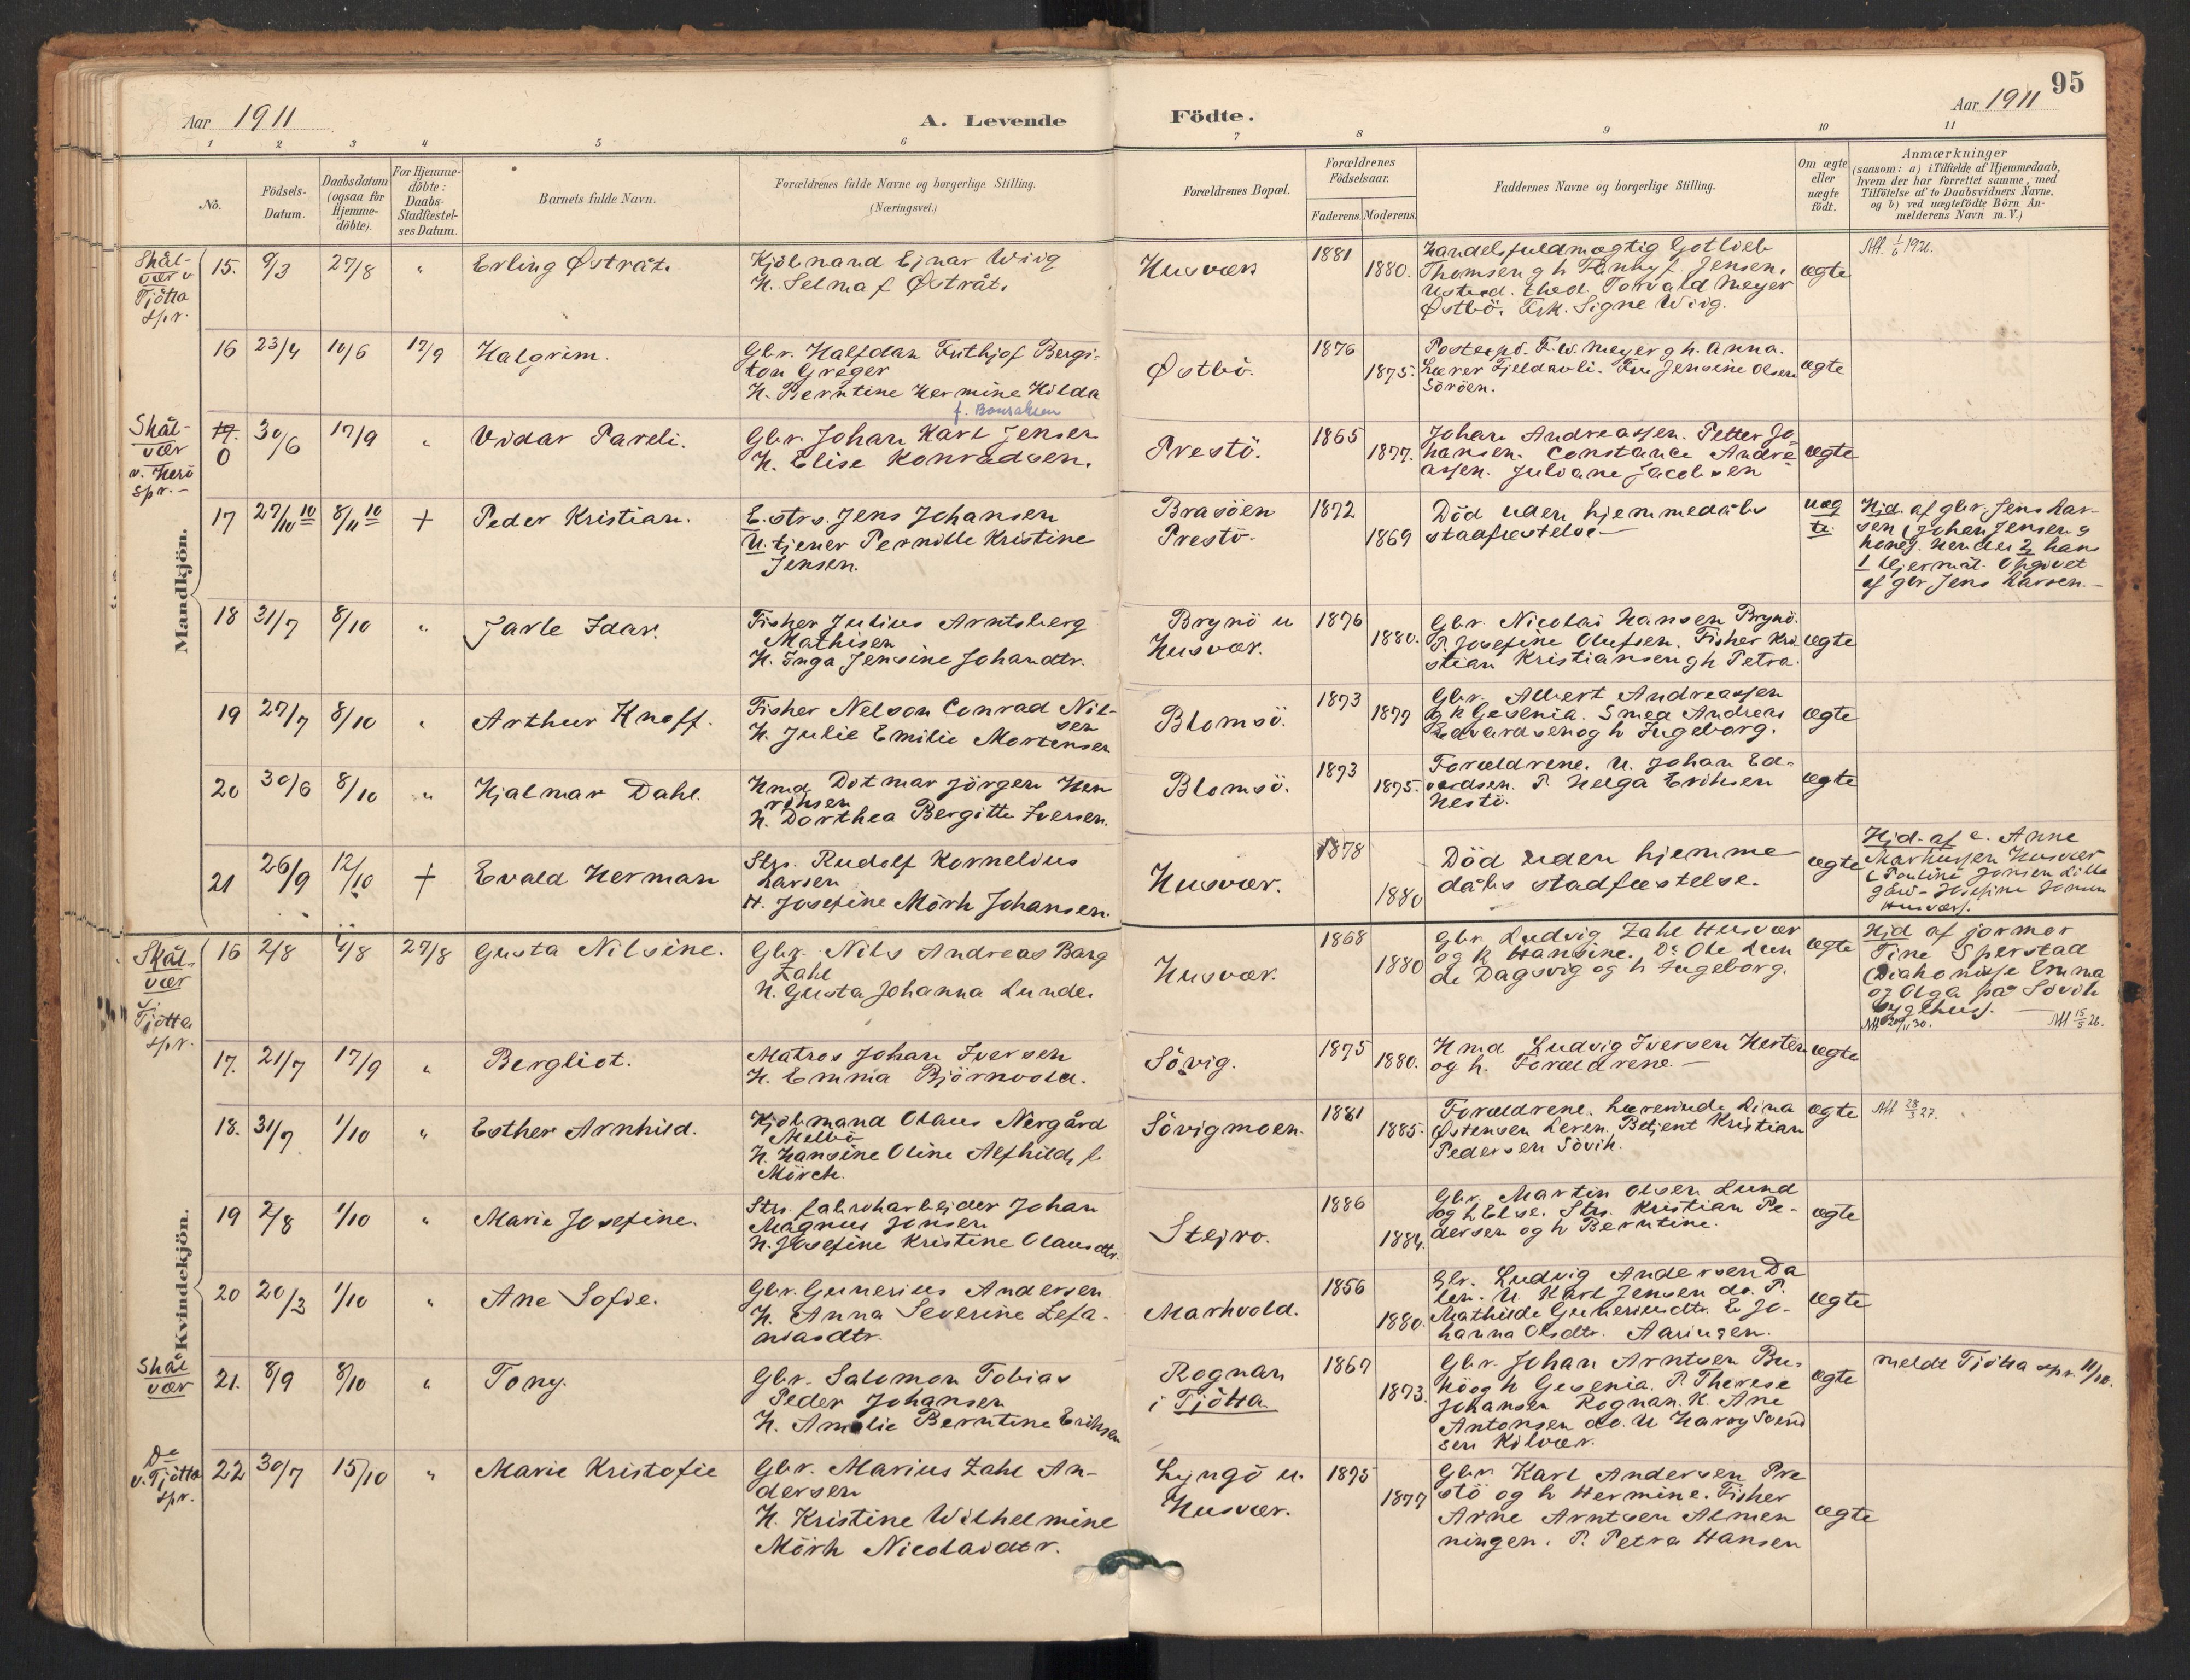 95
Aar 1911
A. Levende Födte.
Aar 1911
1 2 3 4 5 6 7 8 9 10 11
No.
Födsels-
Datum.
Daabsdatum
(ogsaa for
Hjemme-
döbte).
For Hjemme-
döbte:
Daabs-
Stadfæstel-
ses Datum.
Barnets fulde Navn.
Forældrenes fulde Navne og borgerlige Stilling.
(Næringsvei.)
Forældrenes Bopæl.
Forældrenes
Födselsaar.
Faderens. Moderens.
Faddernes Navne og borgerlige Stilling.
Om ægte
eller
uægte
födt.
Anmærkninger
(saasom: a) i Tilfælde af Hjemmedaab,
hvem der har forrettet samme, med
Tilföielse af to Daabsvidners Navne.
og b) ved uægtefödte Börn An-
melderens Navn m. V.)
Mandkjön.
Skål-
vær v
Tjötta
spr.
15. 9/3 27/8 " Erling Østråt.
Kjöbmand Ejnar Wiig
H. Selma f Østråt.
Husvær
1881
1880.
Handelsfuldmægtig Gotlieb
Thomsen g h Fanny f. Jensen.
Ustud. theol. Torvald Meyer
Østbö. Frk. Signe Wiig.
ægte
Att. 1/6 1926.
16 23/4 10/6 17/9 Halgrim.
Gbr. Halfdan Frithjof Bergi-
ton Greger
H. Berntine Hermine Hilda
Østbö.
1876
1875.
Postexpd. F. W. Meyer g h. Anna.
Lærer Fjeldavli. Fru Jensine Olsen
Söröen.
ægte
Skål-
vær
v. Herö
spr.-
17.
0
30/6 17/9 " Vidar Pareli.
Gbr. Johan Karl Jensen
H. Elise Konradsen.
Prestö.
1865
1877.
Johan Andreassen. Petter Jo-
hansen. Constance Andre-
assen. Juliane Jacobsen
ægte
17 27/10 10 8/11 10 + Peder Kristian.
E. strs. Jens Johansen
U. tjener Pernille Kristine
Jensen.
Brasöen
Prestö.
1872
1869
Död uden hjemmedåbs
stadfæstelse-
uæg
te.
Hjd. af gbr. Jens Lar-
sen (Johan Jensen g
kone). Hendes 2 hans
1 lejermål. Opgivet
af gbr Jens Larsen.-
18 31/7 8/10 " Jarle Idar.
Fisker Julius Arntsberg
Mathisen
H. Inga Jensine Johandtr.
Brynö u
Husvær.
1876
1880.
Gbr. Nicolai Hansen Brynö.
P. Josefine Olufsen. Fisker Kri
stian Kristiansen g h Petra.
ægte
19 27/7 8/10 " Arthur Knoff.
Fisker Nelson Conrad Nil-
sen
H. Julie Emilie Mortensen
Blomsö.
1873
1877
Gbr. Albert Andreassen
g h Gesenia. Smed Andreas
Edvardsen og h Ingeborg.
ægte
20 30/6 8/10 " Hjalmar Dahl.
Hmd Ditmar Jörgen Hen
riksen
H. Dorthea Bergitte Iversen.
Blomsö.
1873
1875.
Forældrene. U. Johan Ed-
vardsen. P. Helga Eriksen
Nestö.
ægte
21 26/9 12/10 + Evald Herman
Strs. Rudolf Kornelius
Larsen
H. Josefine Mörk Johansen.
Husvær.
1878
1880
Död uden hjemme
dåbs stadfæstelse.
ægte
Hjd. af e. Anne
Markussen Husvær
(Pouline Jonsen Lille
gård - Josefine Jonsen
Husvær).
Kvindekjön.
Skål-
vær
Tjötta
spr.
16 2/8 4/8 27/8 Gusta Nilsine.
Gbr. Nils Andreas Barg
Zahl
H. Gusta Johanna Lunde.
Husvær.
1868
1880
Gbr. Ludvig Zahl Husvær
og h Hansine. Do Ole Lun
de Dagsvig og h Ingeborg.
ægte
Hjd af jormor
Tine Sperstad
(Diakonisse Emma
og Olga på Sövik
sygehus).
Att 15/5 26.
17. 21/7 17/9 " Bergliot.
Matros Johan Iversen
H. Emma Björnvold.
Sövig.
1875
1880.
Hmd Ludvig Iversen Herten
og h. Forældrene.-
ægte
18. 31/7 1/10 " Esther Arnhild.
Kjöbmand Olaus Nergård
Melbö
H. Hansine Oline Alfhild f
Mörch.
Sövigmoen.
1881
1885.
Forældrene. Lærerinde Lina
Østensen Leren. Betjent Kristian
Pedersen Sövik.
ægte
Att 28/3 27.
19 2/8 1/10 " Marie Josefine.
Strs. fabrikarbejder Johan
Magnus Jonsen
H. Josefine Kristine Olausdtr.
Stejro.
1886
1884.
Gbr. Martin Olsen Lund
og h Else. Strs. Kristian Pe-
dersen og h Berntine.
ægte
20 20/3 1/10 " Ane Sofie.
Gbr. Gunerius Andersen
H. Anna Severine Zefa-
niasdtr.
Markvold.
1856
1880.
Gbr. Ludvig Andersen Da
len. U. Karl Jensen do. P.
Mathilde Guneriusdtr. E Jo-
hanna Olsdtr. Aarinsen.
ægte
Skål
vær
21. 8/9 8/10 " Tony.
Gbr. Salomon Tobias
Peder Johansen
H. Amalie Berntine Eriksen
Rognan
i Tjötta
1867
1873.
Gbr. Johan Arntsen Bu-
kö og h Gesenia. P. Therese
Johansen Rognan. K. Ane
Antonsen do. U Harry Svend
sen Kilvær.
ægte
meldt Tjötta spr. 11/10.
Do
v. Tjötta
spr.
22 30/7 15/10 " Marie Kristofie
Gbr. Marius Zahl An-
dersen
H. Kristine Wilhelmine
Mörk Nicolaidtr.
Lyngö u.
Husvær.
1875
1877
Gbr. Karl Andersen Pre
stö og h Hermine. Fisker
Arne Arntsen Almen
ningen. P. Petra Hansen
ægte